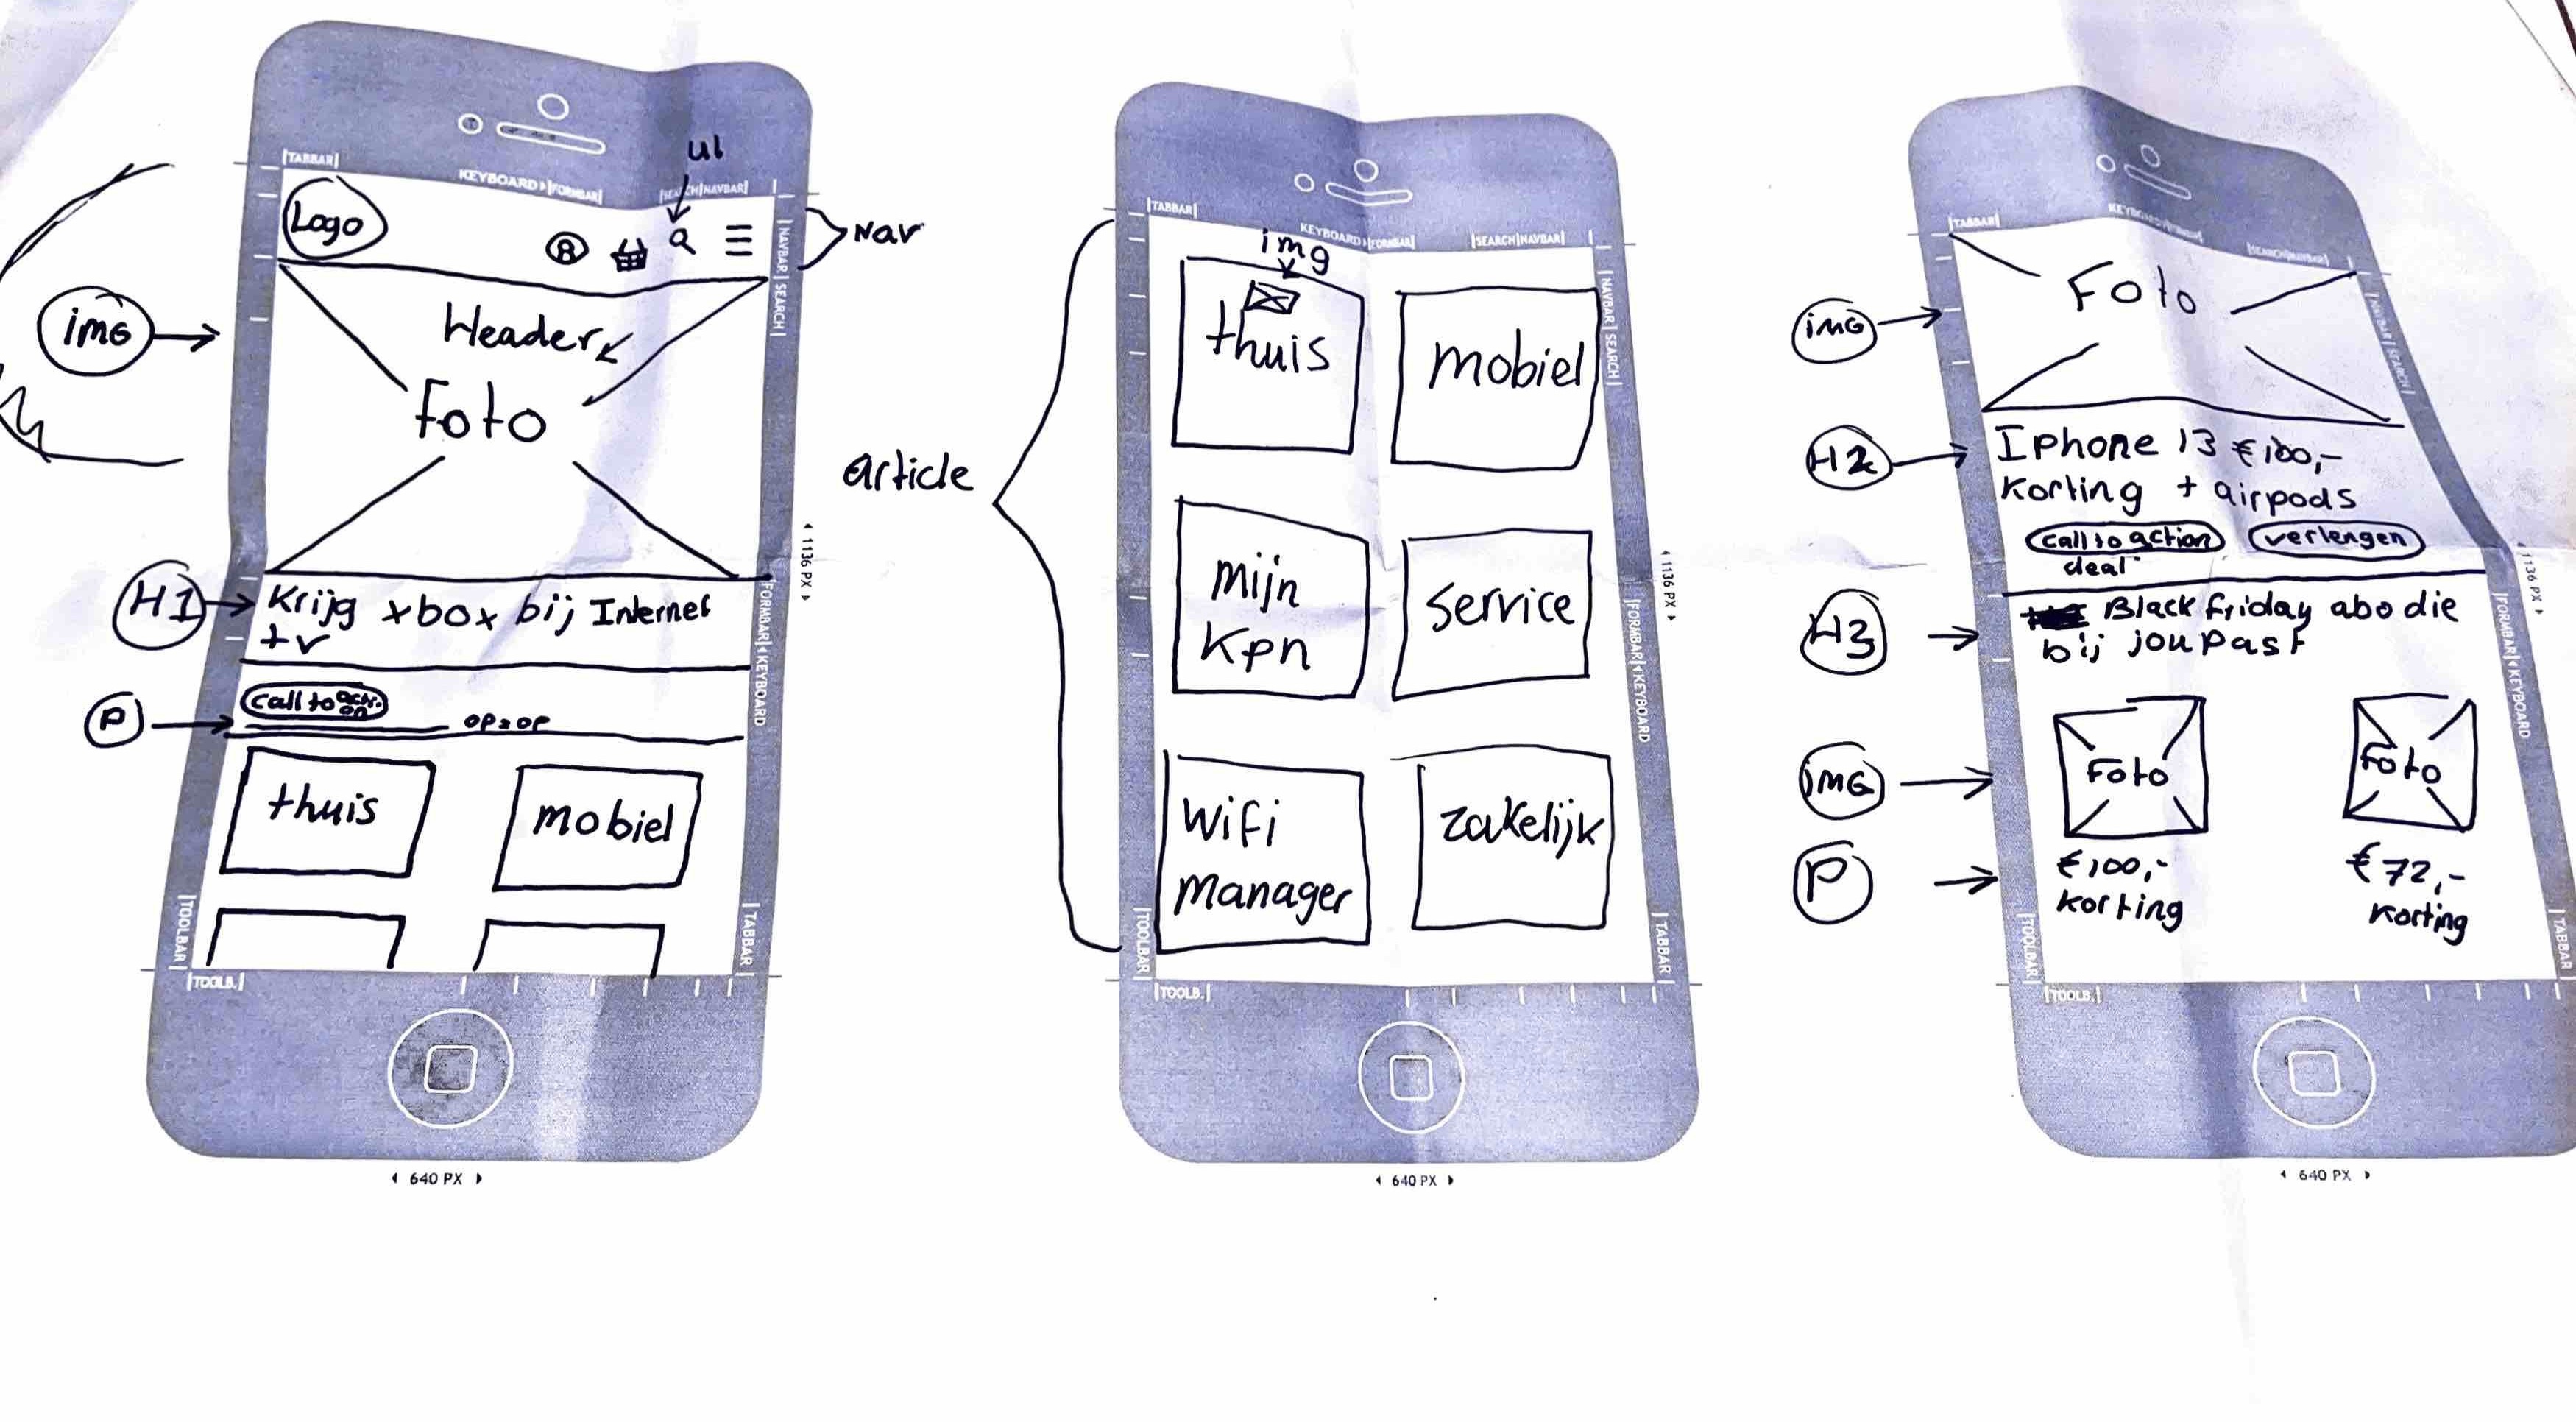 ul
|TABBAR|
KEYBOARD |FORMBAR|
|SEARCH|NAVBAR|
Logo
Nav
|NAVBAR|SEARCH|
img
Header
Foto
1136 PX
H1
Krijg xbox bij Internet
+ tv
|FORMBAR|KEYBOARD
P
Call to action
op=op
thuis
mobiel
|TOOLBAR|
|TABBAR|
|TOOLB.|
640 PX
article
|TABBAR|
KEYBOARD |FORMBAR|
|SEARCH|NAVBAR|
img
|NAVBAR|SEARCH|
thuis
mobiel
1136 PX
mijn
Kpn
service
|FORMBAR|KEYBOARD
wifi
manager
zakelijk
|TOOLBAR|
|TABBAR|
|TOOLB.|
640 PX
|TABBAR|
KEYBOARD |FORMBAR|
|SEARCH|NAVBAR|
img
Foto
|NAVBAR|SEARCH|
H2
Iphone 13 €100,-
Korting + airpods
call to action
deal
verlengen
1136 PX
H3
Black friday abo die
bij jou past
|FORMBAR|KEYBOARD
img
Foto
Foto
P
€100,-
korting
€72,-
korting
|TOOLBAR|
|TABBAR|
|TOOLB.|
640 PX